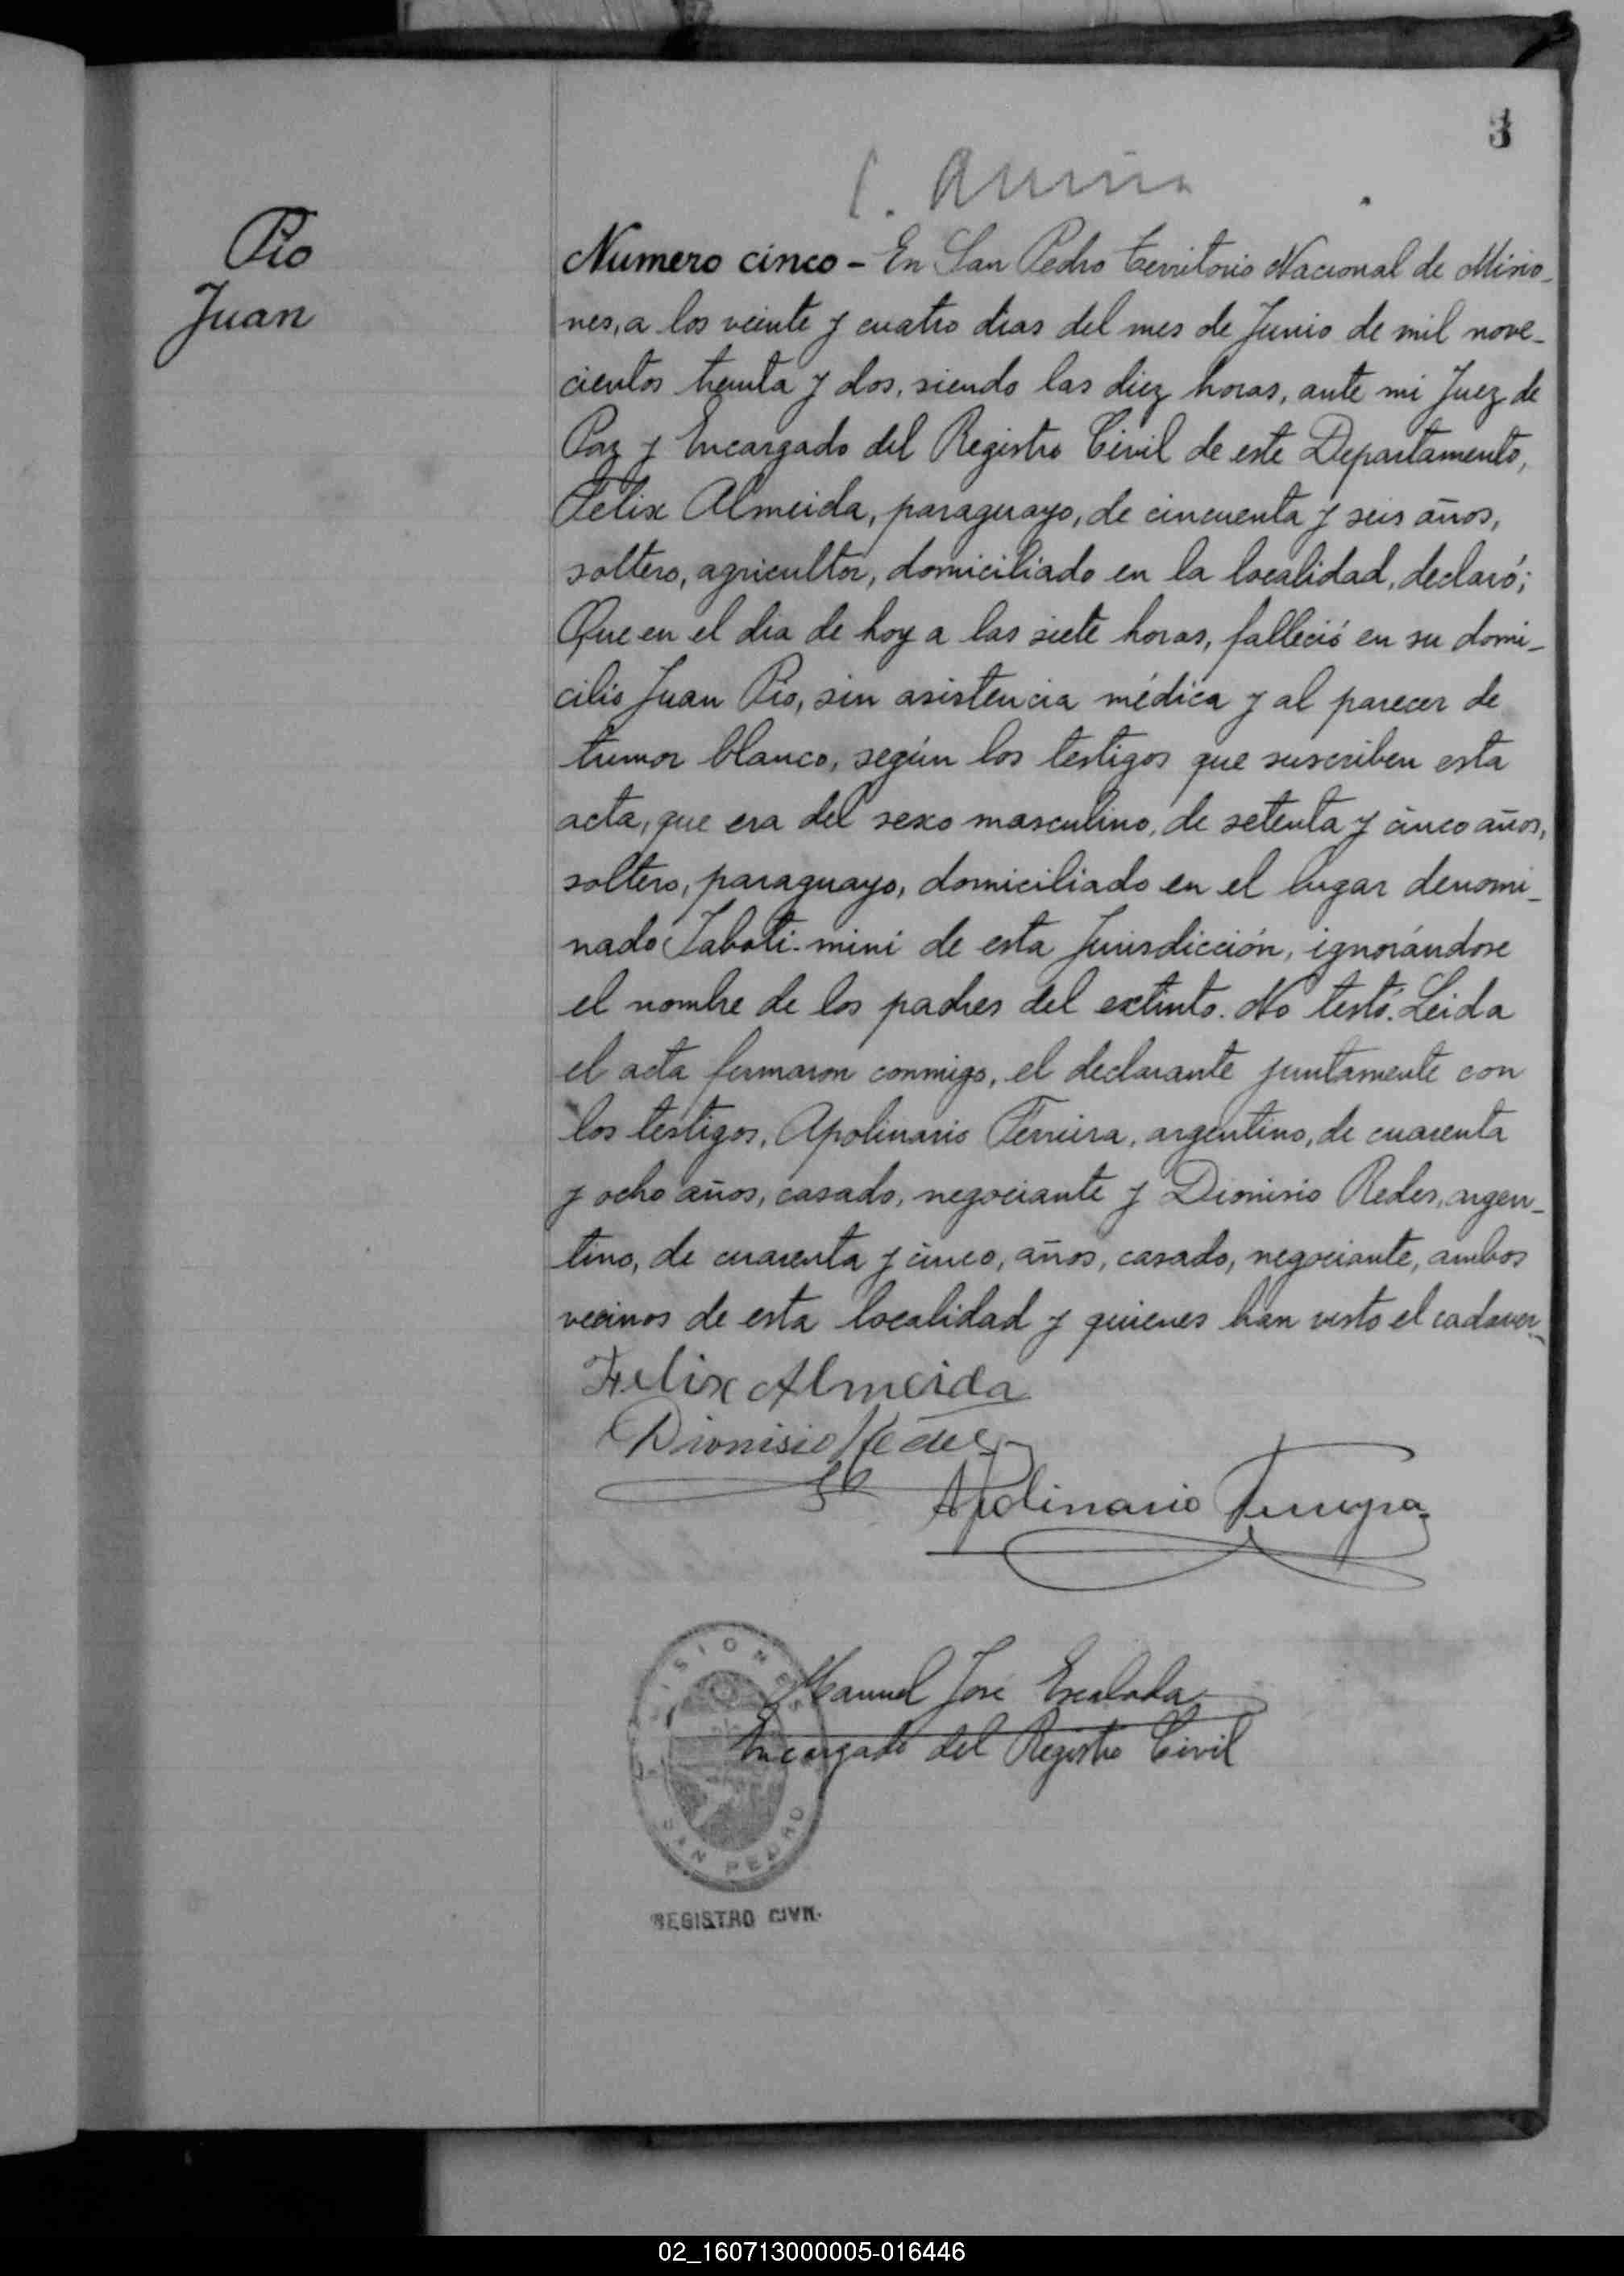 3
Pio
Juan
Numero cinco - En San Pedro Territorio Nacional de Misio-
nes, a los veinte y cuatro dias del mes de Junio de mil nove-
cientos treinta y dos, siendo las diez horas, ante mi Juez de
Paz y Encargado del Registro Civil de este Departamento,
Felix Almeida, paraguayo, de cincuenta y seis años,
soltero, agricultor, domiciliado en la localidad, declaró;
Que en el dia de hoy a las siete horas, falleció en su domi-
cilio Juan Pio, sin asistencia médica y al parecer de
tumor blanco, según los testigos que suscriben esta
acta, que era del sexo masculino, de setenta y cinco años,
soltero, paraguayo, domiciliado en el lugar denomi-
nado Yaboti-mini de esta Jurisdicción, ignorándose
el nombre de los padres del extinto. No testó. Leida
el acta firmaron conmigo, el declarante juntamente con
los testigos, Apolinario Ferreira, argentino, de cuarenta
y ocho años, casado, negociante y Dionisio Redes, argen-
tino, de cuarenta y cinco, años, casado, negociante, ambos
vecinos de esta localidad y quienes han visto el cadaver-
Felix Almeida
Dionisio Redes
Apolinario Ferreyra
Manuel José Escalada
Encargado del Registro Civil
MISIONES
SAN PEDRO
REGISTRO CIVIL
02_160713000005-016446